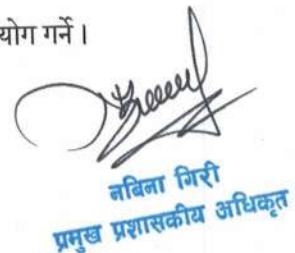 योग गर्ने ।
नबिना गिरी
प्रमुख प्रशासकीय अधिकृत